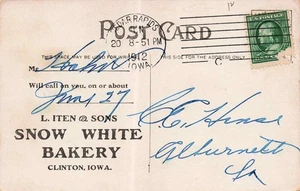 POST CARD
CEDAR RAPIDS
20 8-51 PM
1912
IOWA.
THIS SPACE MAY BE USED FOR MESSAGE
THIS SIDE FOR THE ADDRESS ONLY.
Mr.
Will call on you, on or about
June 27
L. ITEN & SONS
SNOW WHITE
BAKERY
CLINTON, IOWA.
C C House
Alburnett
Ia